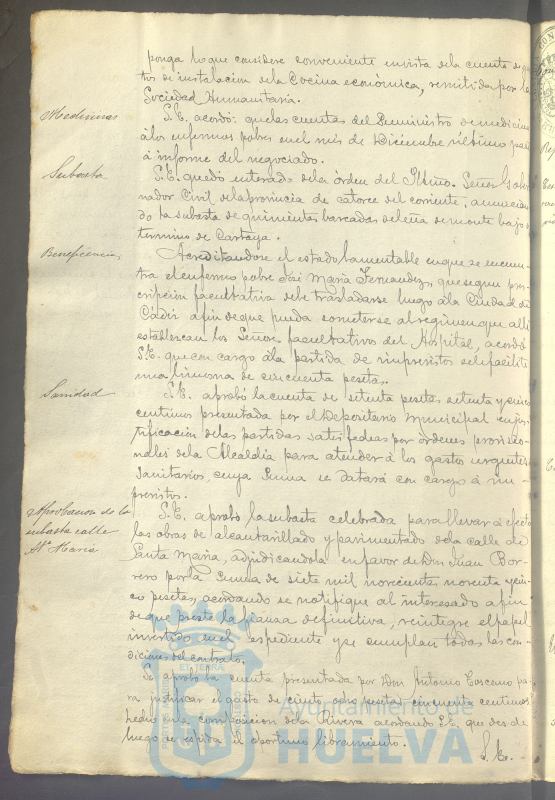 ponga lo que considere conveniente en vista de la cuenta de gas
tos de instalacion de la Cocina económica, remitida por la
Sociedad Humanitaria.
Medicinas
S.E. acordó: que las cuentas del Suministro de medicinas
á los enfermos pobres en el mes de Diciembre último pase
á informe del negociado.
Subasta
S.E. quedó enterado de la orden del Iltmo. Señor Gober
nador Civil de la provincia de catorce del corriente, anuncian
do la subasta de quinientas barcadas de leña de monte bajo
termino de Cartaya.
Beneficencia
Acreditandose el estado lamentable en que se encuen
tra el enfermo pobre José María Fernandez, que segun pres
cripción facultativa debe trasladarse luego á la Ciudad de
Cádiz a fin de que pueda someterse al regimen que alli
establezcan los Señores facultativos del Hospital, acordó
S.E. que con cargo á la partida de imprevistos se le facilite
una limosna de cincuenta pesetas.
Sanidad
S.E. aprobó la cuenta de setenta pesetas setenta y cinco
centimos presentada por el Depositario Municipal en jus
tificación de las partidas satisfechas por ordenes provisio
nales de la Alcaldía para atender á los gastos urgentes
Sanitarios, cuya Suma se datará con cargo á im-
previstos.
Aprobacion de la
subasta calle
Sta. Maria
S.E. aprobó la subasta celebrada para llevar á efecto
las obras de alcantarillado y pavimentado de la calle de
Santa Maria, adjudicandola en favor de Don Juan Bor-
rero por la Suma de siete mil novecientas noventa y cin
co pesetas, acordando se notifique al interesado a fin
de que preste la fianza definitiva, reintegre el papel
invertido en el expediente y se cumplan todas las con
diciones del contrato.
Se aprobó la cuenta presentada por Don Antonio pa
ra justificar el gasto de ciento once pesetas cincuenta centimos
hecho en la composicion de la Rivera acordando S.E. que desde
luego se expida el oportuno libramiento.
S.E.
Ayuntamiento de
HUELVA